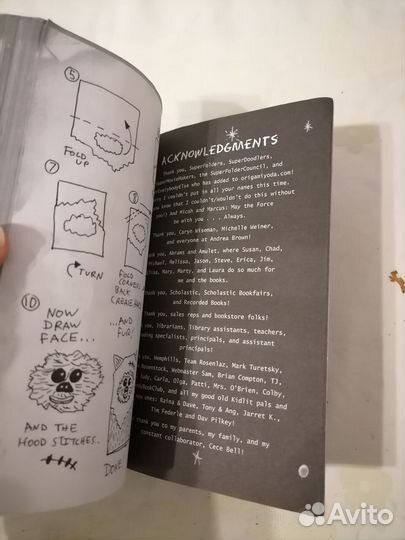 5
FOLD
UP
7
TURN
8
FOLD
CORNER
BACK
CREASE
10
NOW
DRAW
FACE...
...AND
FUR!
AND THE
HOOD STITCHES.
DONE
ACKNOWLEDGMENTS
Thank you, SuperFolders, SuperDoodlers,
MovieMakers, the SuperFolderCouncil, and
everybodyElse who has added to origamiyoda.com!
I couldn't put in all your names this time.
know that I couldn't/wouldn't do this without
you!) And Micah and Marcus: May the Force
be with you . . . Always.
Thank you, Caryn Wiseman, Michelle Weiner,
and everyone at Andrea Brown!
you, Abrams and Amulet, where Susan, Chad,
Michael, Melissa, Jason, Steve, Erica, Jim,
Mary, Marty, and Laura do so much for
me and the books.
Thank you, Scholastic, Scholastic Bookfairs,
and Recorded Books!
you, sales reps and bookstore folks!
you, librarians, library assistants, teachers,
reading specialists, principals, and assistant
principals!
you, Hemphills, Team Rosenlaz, Mark Turetsky,
Webmaster Sam, Brian Compton, TJ,
Judy, Carla, Olga, Patti, Mrs. O'Brien, Colby,
and all my good old Kidlit pals and
new ones: Raina & Dave, Tony & Ang, Jarret K.,
Tim Federle and Dav Pilkey!
Thank you to my parents, my family, and my
constant collaborator, Cece Bell!
Avito